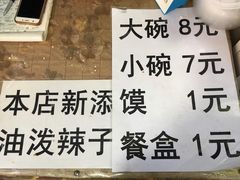 本店新添
油泼辣子
大碗 8元
小碗 7元
馍 1元
餐盒 1元